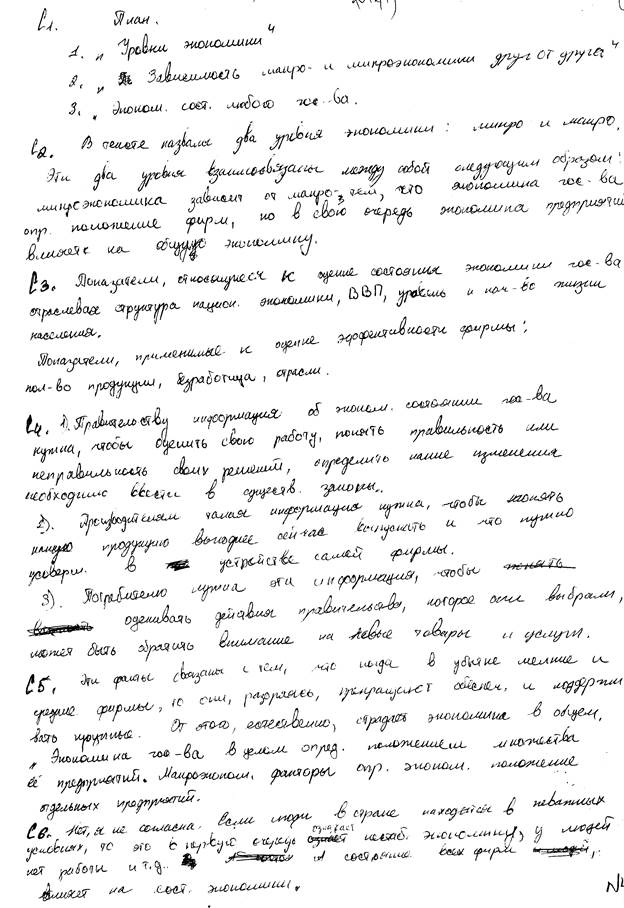 С1. План.
1. „Уровни экономики"
2. „Зависимость макро- и микроэкономики друг от друга"
3. „Эконом. сост. любого гос-ва.
С2. В тексте названы два уровня экономики: микро и макро.
Эти два уровня взаимосвязаны между собой следующим образом:
микроэкономика зависит от макро- тем, что экономика гос-ва
опр. положение фирм, но в свою очередь экономика предприятий
влияет на общую экономику.
С3. Показатели, относящиеся к оценке состояния экономики гос-ва
отраслевая структура национ. экономики, ВВП, уровень и кач-во жизни
населения.
Показатели, применимые к оценке эффективности фирмы:
кол-во продукции, безработица, отрасли.
С4. 1). Правительству информация об эконом. состоянии гос-ва
нужна, чтобы оценить свою работу, понять правильность или
неправильность своих решений, определить какие изменения
необходимо ввести в существ. законы.
2). Производителям такая информация нужна, чтобы понять
какую продукцию выгоднее сейчас выпускать и что нужно
усоверш. в устройстве самой фирмы.
3). Потребителю нужна эта информация, чтобы
оценивать действия правительства, которое они выбрали,
может быть обратить внимание на новые товары и услуги.
С5. Эти факты связаны с тем, что когда в убытке мелкие и
средние фирмы, то они, разоряясь, прекращают обеспеч. и поддержи
вать крупные. От этого, естественно, страдает экономика в общем.
„Экономика гос-ва в целом опред. положением множества
её предприятий. Макроэконом. факторы опр. эконом. положение
отдельных предприятий.
С6. Нет, я не согласна. Если люди в стране находятся в неважных
условиях, то это в первую очередь означает нестаб. экономику, у людей
нет работы и т.д. А состояние всех фирм
влияет на сост. экономики.